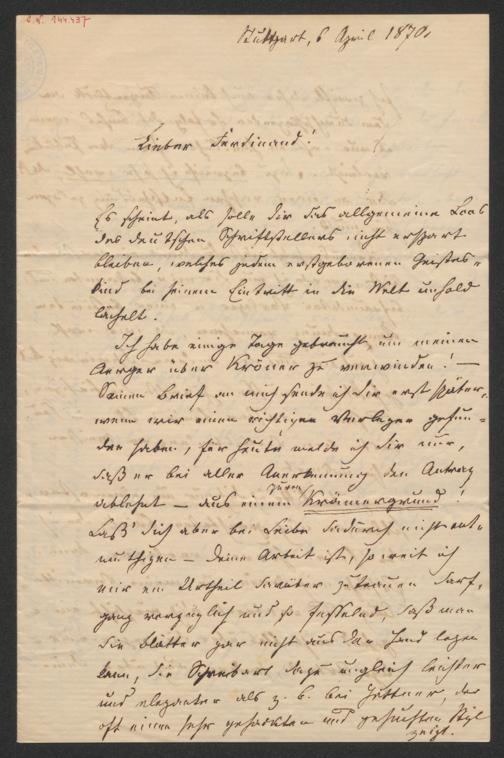 I.N. 144.437
Stuttgart, 6 April 1870.
Lieber Ferdinand!
Es scheint, als solle dir das allgemeine Loos
des deutschen Schriftstellers nicht erspart
bleiben, welches jedem erstgeborenen Geistes-
kind bei seinem Eintritt in die Welt unhold
lächelt.
Ich habe einige Tage gebraucht um meinen
Aerger über Kröner zu verwinden! —
Seinen Brief an mich sende ich dir erst später,
wenn wir einen richtigen Verleger gefun-
den haben, für heute melde ich dir nur,
daß er bei aller Anerkennung den Antrag
ablehnt — aus einem puren Krämergrund!
Laß' dich aber bei Leibe dadurch nicht ent-
muthigen — deine Arbeit ist, so weit ich
mir ein Urtheil darüber zutrauen darf,
ganz vorzüglich und so fesselnd, daß man
die Blätter gar nicht aus der Hand legen
kann, die Schreibart dazu ungleich leichter
und eleganter als z. b. bei Hettner, der
oft einen sehr gehackten und gesuchten Styl
zeigt.